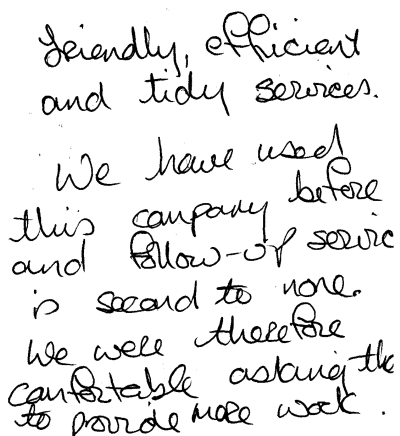 friendly, efficient
and tidy services.
We have used
this company before
and follow-up servic
is second to none.
We were therefore
comfortable asking the
to provide more work.